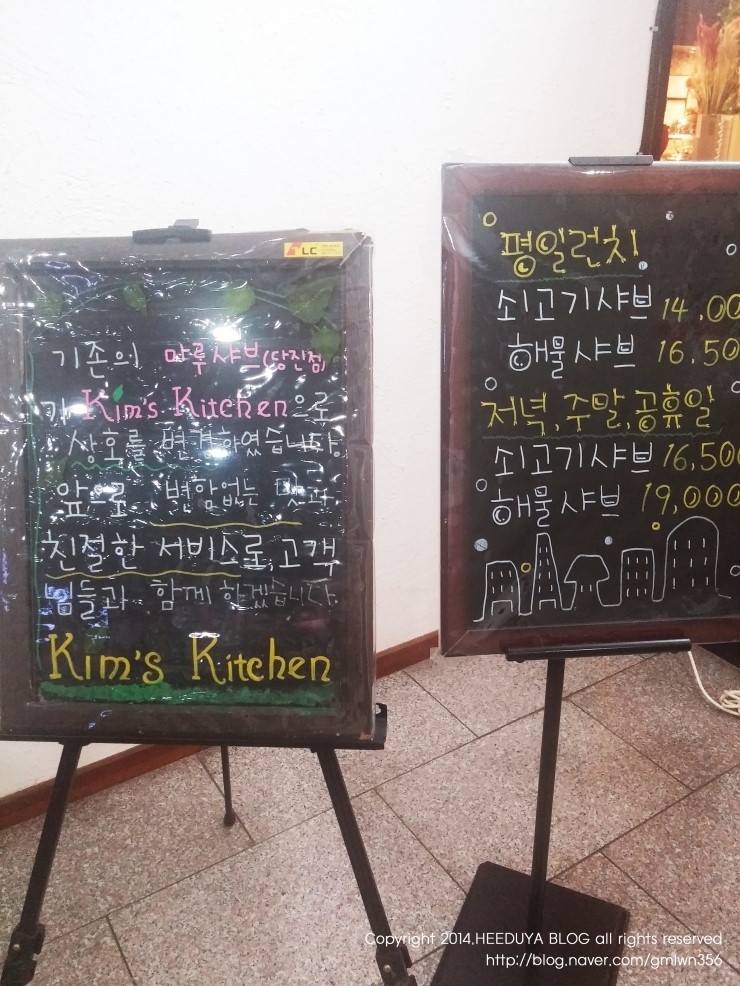 LC
기존의 마루샤브(당진점)
가 Kim's Kitchen으로
상호를 변경하였습니다.
앞으로 변함없는 맛과
친절한 서비스로, 고객
님들과 함께 하겠습니다.
Kim's Kitchen
평일런치
쇠고기샤브 14,00
해물샤브 16,50
저녁,주말,공휴일
쇠고기샤브 16,500
해물샤브 19,000
Copyright 2014.HEEDUYA BLOG all rights reserved
http://blog.naver.com/gmlwn356